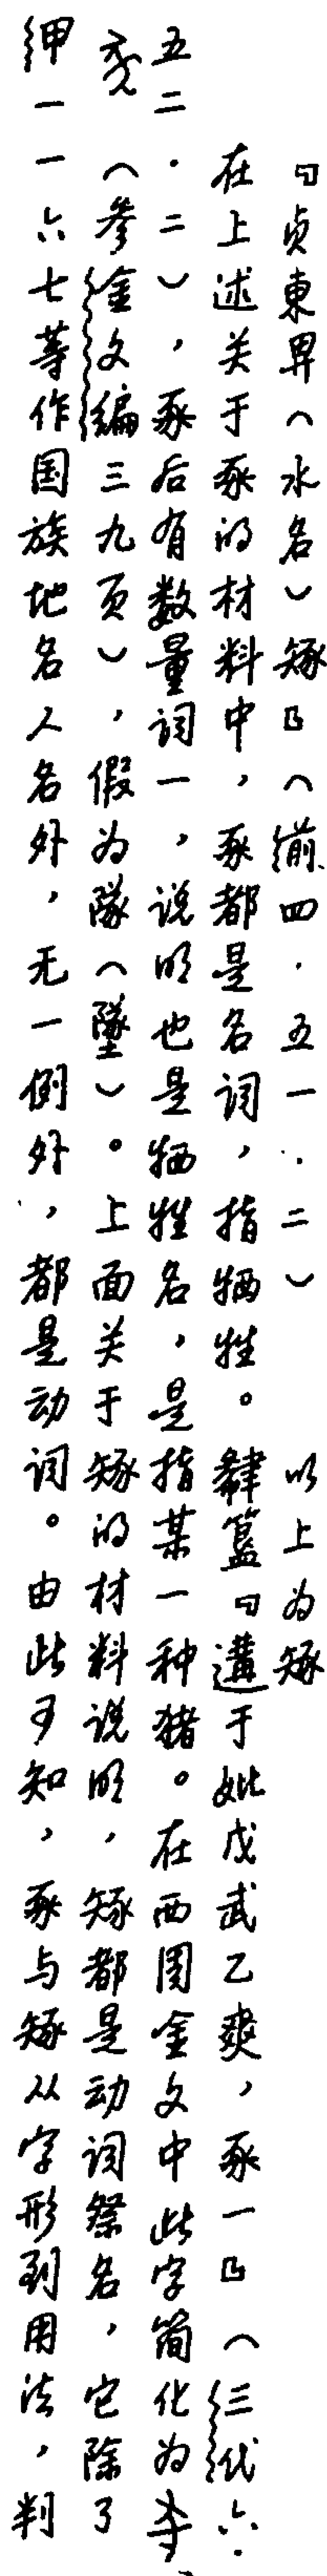 『贞東畀（水名）』（前四·五一·二） 以上为
在上述关于豖的材料中，豖都是名词，指牺牲。簋『遘于妣戊武乙奭，豖一』（三代六·
五二·二），豖后有数量词一，说明也是牺牲名，是指某一种猪。在西周金文中此字简化为
（参金文编三九页），假为隊（墜）。上面关于的材料说明，都是动词祭名，它除了
甲一一六七等作国族地名人名外，无一例外，都是动词。由此可知，豖与从字形到用法，判